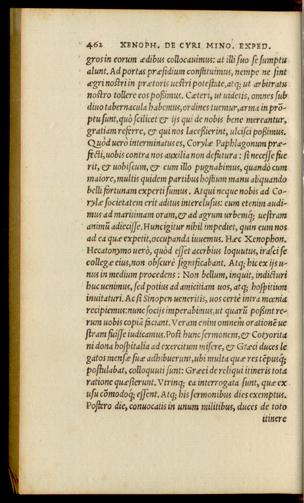 462 XENOPH. DE CYRI MINO. EXPED.
gros in eorum ædibus collocauimus: at illi suo se sumptu
alunt. Ad portas præsidium constituimus, nempe ne sint
ægri nostri in prætoris uestri potestate, atq; ut arbitratu
nostro tollere eos possimus. Cæteri, ut uidetis, omnes sub
diuo tabernacula habemus, ordines tuemur, arma in prō-
ptu sunt, quò scilicet & ijs qui de nobis bene mereantur,
gratiam referre, & qui nos lacessierint, ulcisci possimus.
Quòd uerò interminatus es, Corylæ Paphlagonum præ-
fecti, uobis contra nos auxilia non defutura: si necesse fue
rit, & uobiscum, & cum illo pugnabimus, quando cum
maiore, multis quidem partibus hostium manu aliquando
belli fortunam experti sumus. Atqui neque nobis ad Co-
rylæ societatem erit aditus interclusus: cum etenim audi-
mus ad maritimam oram, & ad agrum urbemq; uestram
animū adiecisse. Huncigitur nihil impediet, quin eum nos
ad ea quæ expetit, occupanda iuuemus. Hæc Xenophon.
Hecatonymo uerò, quòd esset acerbius loquutus, irasci se
collegæ eius, non obscurè significabant. Atq; hic ex ijs u-
nus in medium procedens: Non bellum, inquit, indicturi
huc uenimus, sed potius ad amicitiam uos, atq; hospitium
inuitaturi. Ac si Sinopen ueneritis, uos certè intra mœnia
recipiemus: nunc socijs imperabinus, ut quarū possint re-
rum uobis copiā faciant. Veram enim omnem orationē ue
stram fuisse iudicamus. Post hunc sermonem, & Cotyorita
ni dona hospitalia ad exercitum misere, & Græci duces le
gatos mensæ suæ adhibuerunt, ubi multa quæ res tēpusq;
postulabat, colloquuti sunt: Græci de reliqui itineris tota
ratione quæsierunt. Vtrinq; ea interrogata sunt, quæ ex
usu cōmodoq; essent. Atq; his sermonibus dies exemptus.
Postro die, conuocatis in unum militibus, duces de toto
itinere